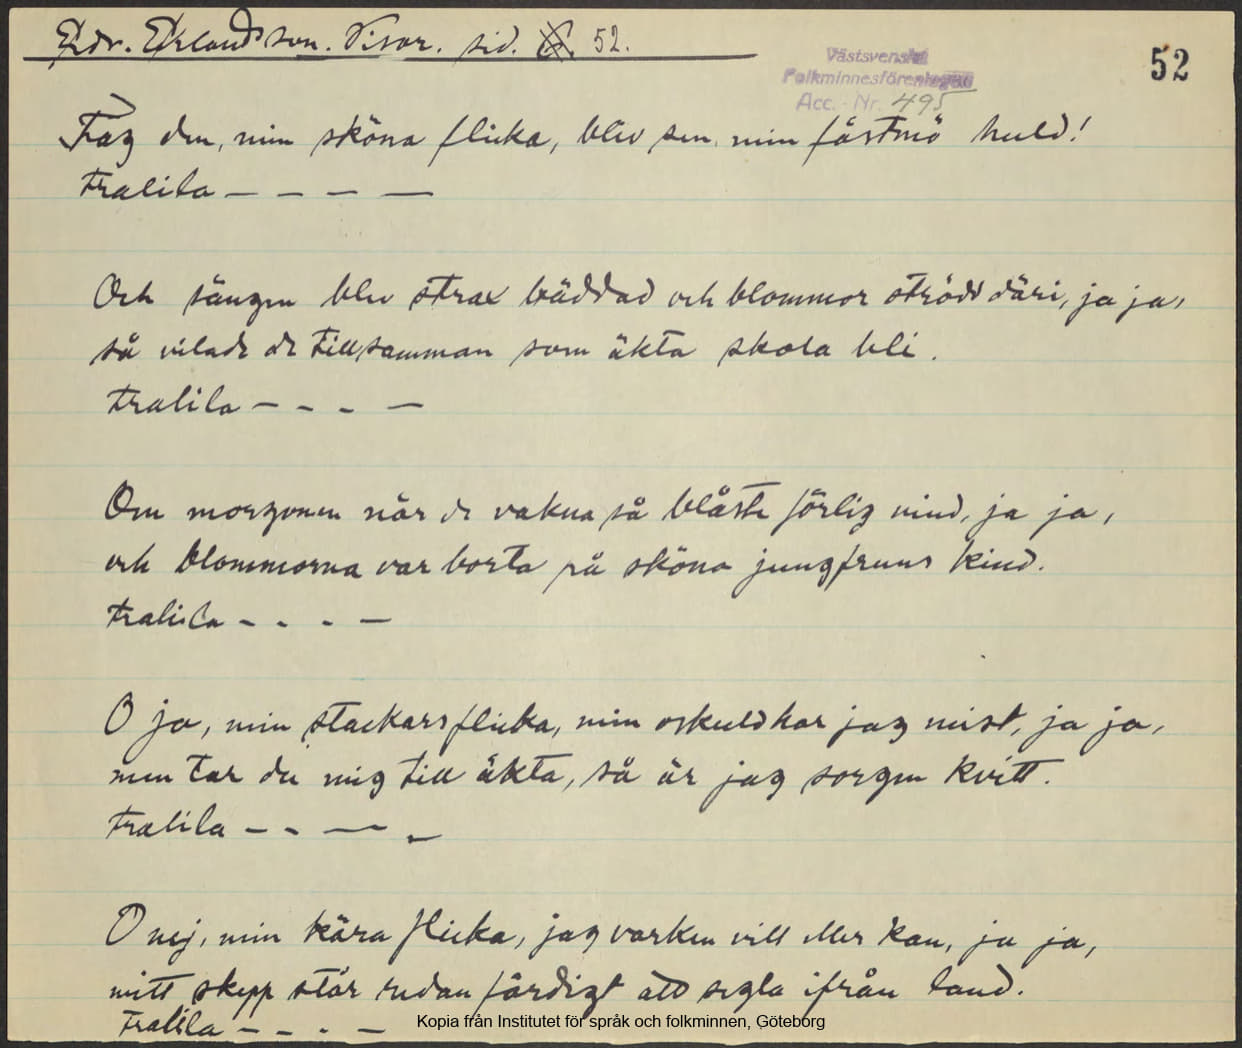 Fredr. Erlandsson. Visor. sid. 52.
52
Västsvenska
Folkminnesföreningen
Acc. - Nr. 495
Tag den, min sköna flicka, bliv sen min fästmö huld!
Tralila — — — —
Och sängen blev strax bäddad och blommor strödd däri, ja ja,
så vilade de tillsamman som äkta skola bli.
Tralila — - - —
Om morgonen när de vakna så blåste förlig vind, ja ja,
och blommorna var borta på sköna jungfruns kind.
Tralila - - - —
O ja, min stackars flicka, min oskuld har jag mist, ja ja,
men tar du mig till äkta, så är jag sorgen kvitt.
Tralila - - — —
O nej, min kära flicka, jag varken vill eller kan, ja ja,
mitt skepp står redan färdigt att segla ifrån land.
Tralila — - - —
Kopia från Institutet för språk och folkminnen, Göteborg